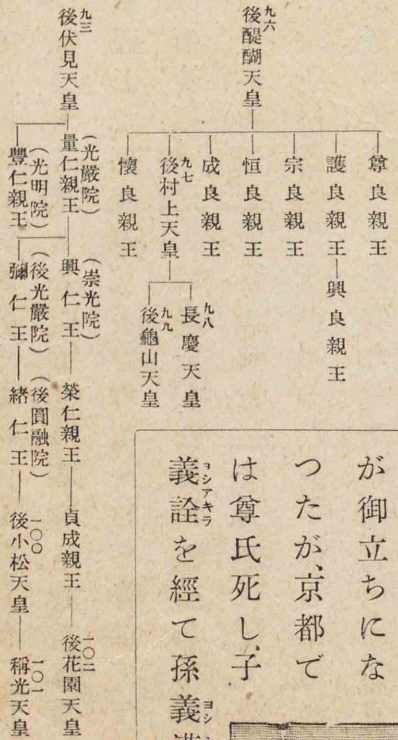 九六
後醍醐天皇
尊良親王
護良親王
興良親王
宗良親王
恒良親王
成良親王
九七
後村上天皇
九八
長慶天皇
九九
後龜山天皇
懷良親王
九三
後伏見天皇
(光嚴院)
量仁親王
(崇光院)
興仁王
榮仁親王
貞成親王
一〇二
後花園天皇
(光明院)
豐仁親王
(後光嚴院)
彌仁王
(後圓融院)
緒仁王
一〇〇
後小松天皇
一〇一
稱光天皇
が御立ちにな
つたが、京都で
は尊氏死し、子
義詮を經て孫義
ヨシアキラ
ヨシ